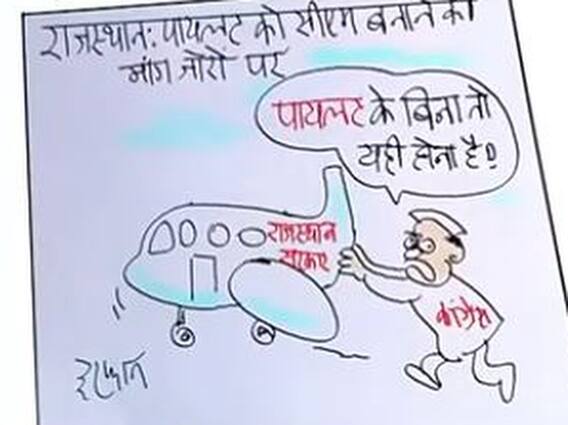 राजस्थान: पायलट को सीएम बनाने की
मांग जोरों पर
पायलट के बिना तो
यही होना है!
राजस्थान
सरकार
कांग्रेस
इरफान